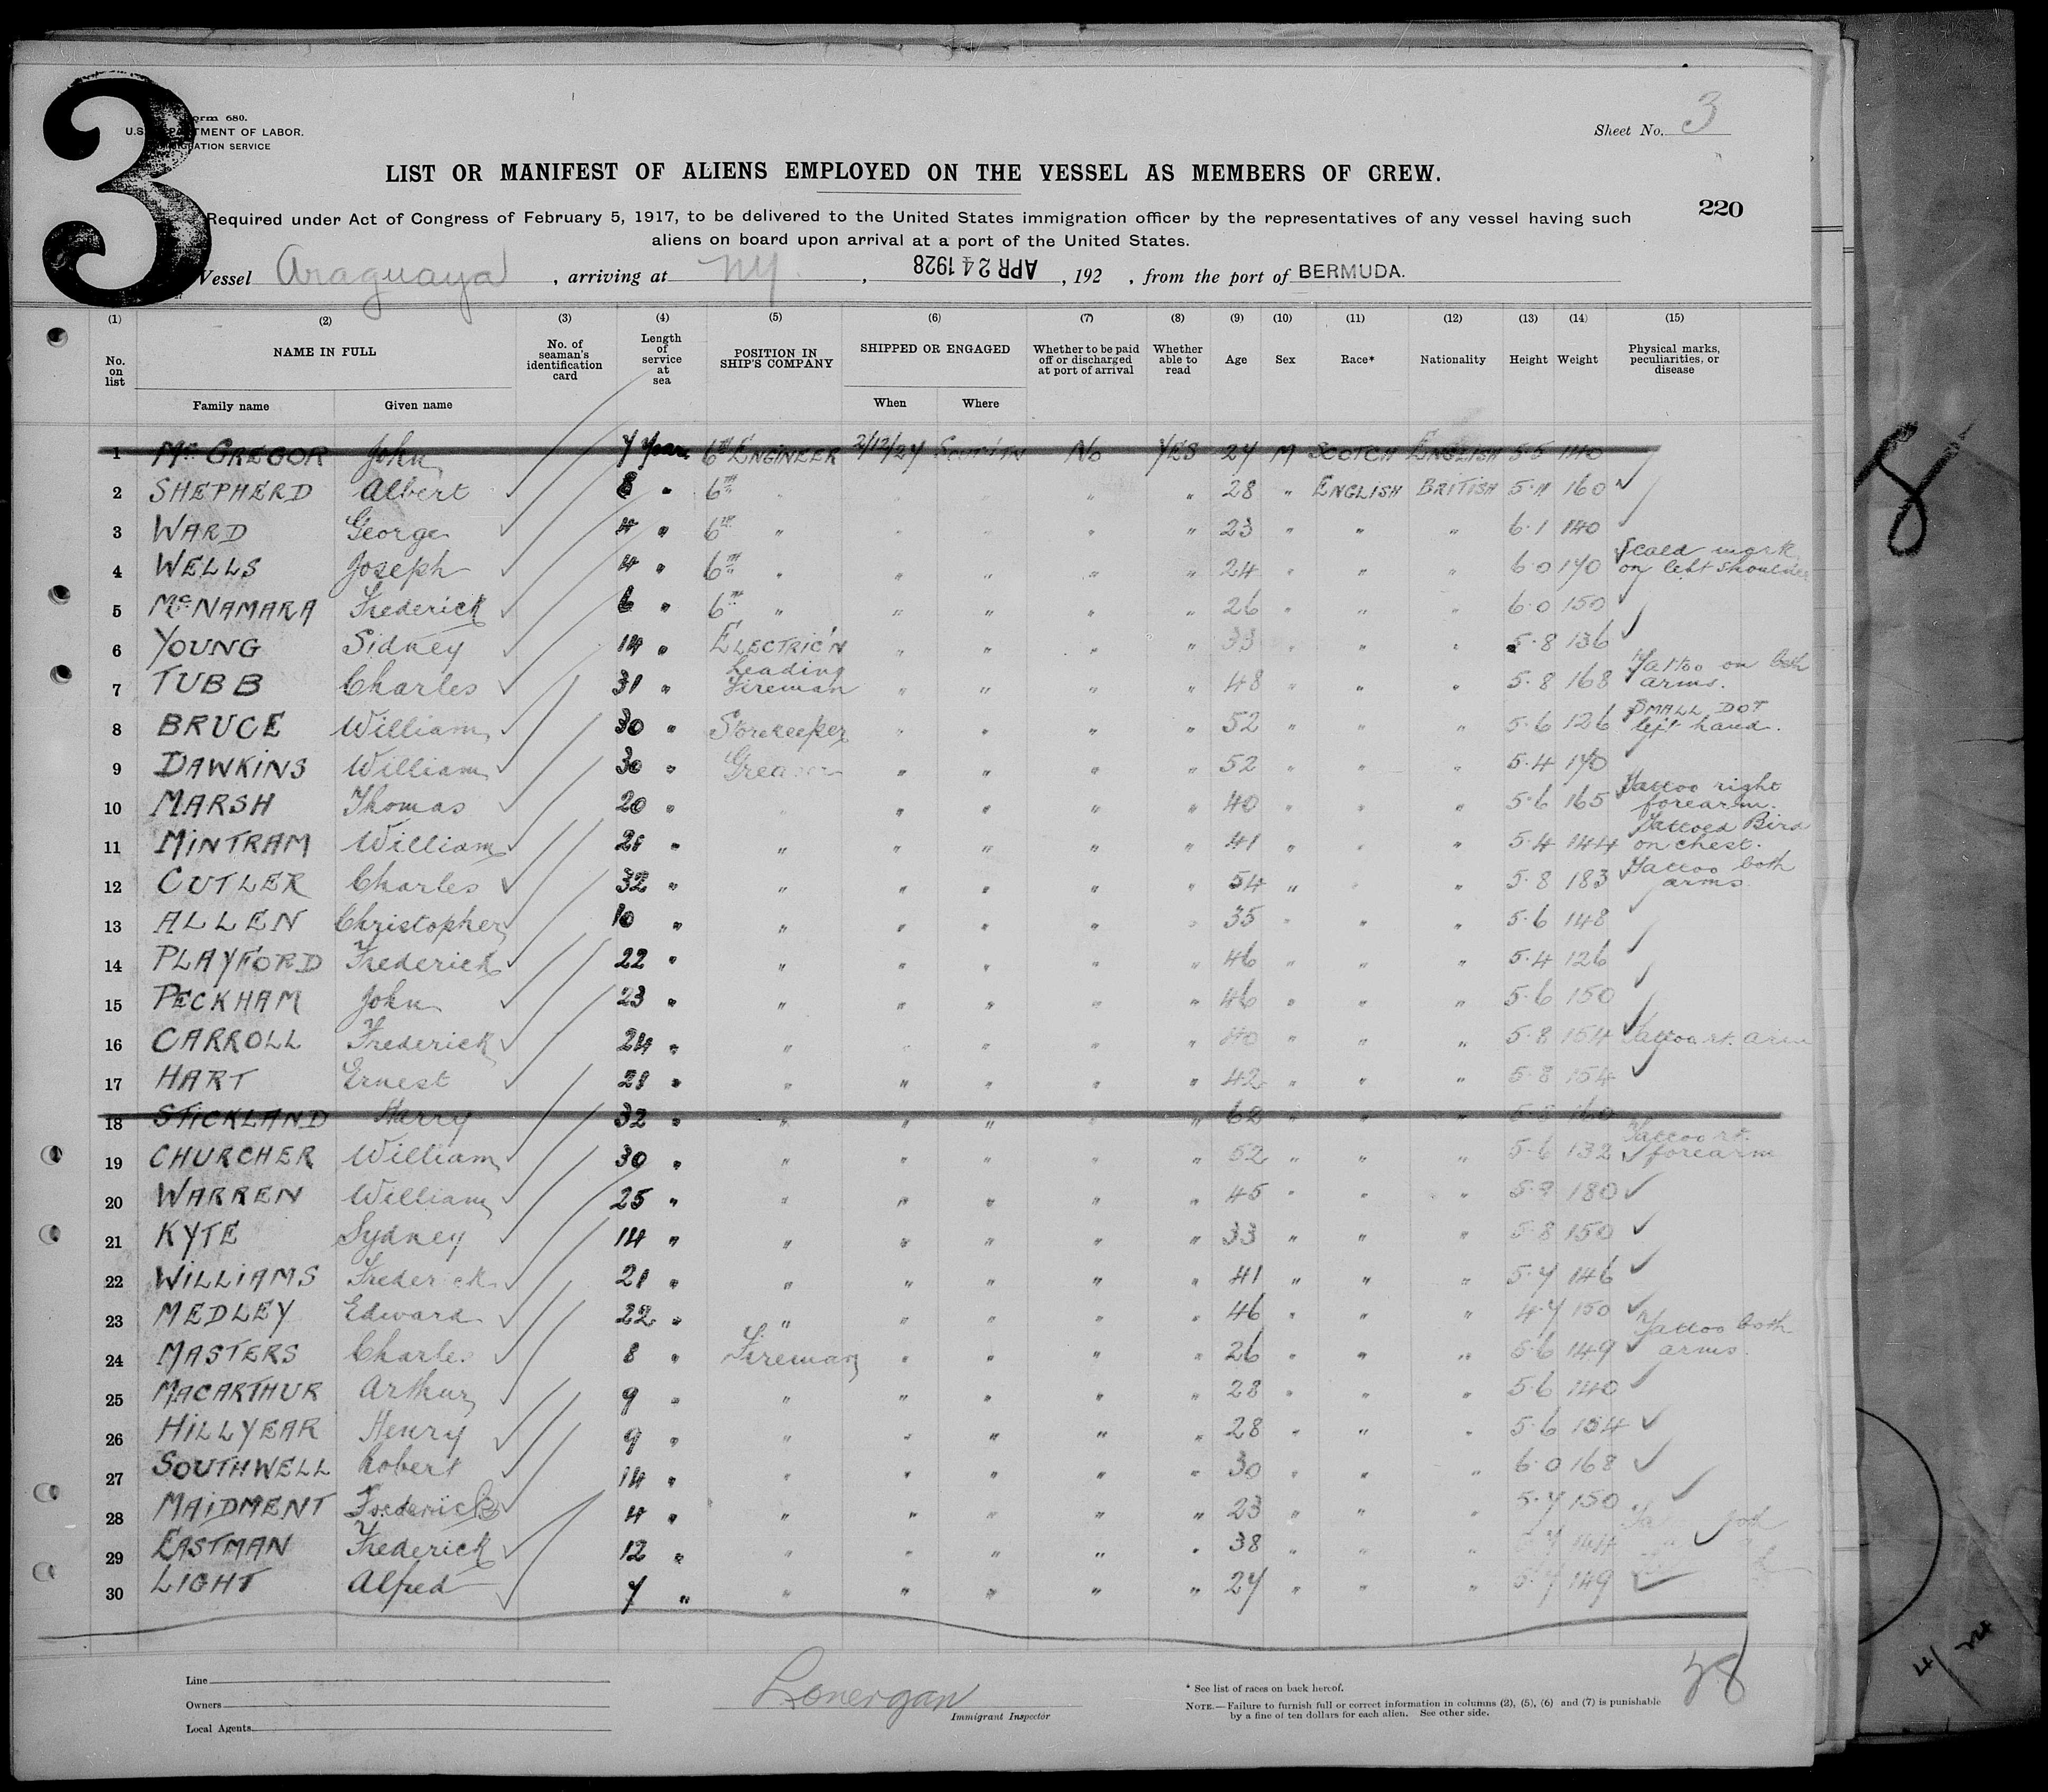 3
Form 680.
U.S. DEPARTMENT OF LABOR.
IMMIGRATION SERVICE
Sheet No. 3
LIST OR MANIFEST OF ALIENS EMPLOYED ON THE VESSEL AS MEMBERS OF CREW.
220
Required under Act of Congress of February 5, 1917, to be delivered to the United States immigration officer by the representatives of any vessel having such
aliens on board upon arrival at a port of the United States.
Vessel Araguaya, arriving at NY., APR 24 1928, 192 , from the port of BERMUDA.
(1) (2) (3) (4) (5) (6) (7) (8) (9) (10) (11) (12) (13) (14) (15)
No. on list NAME IN FULL No. of seaman's identification card Length of service at sea POSITION IN SHIP'S COMPANY SHIPPED OR ENGAGED Whether to be paid off or discharged at port of arrival Whether able to read Age Sex Race* Nationality Height Weight Physical marks, peculiarities, or disease
Family name Given name When Where
1 McGREGOR John 7 Years 6TH ENGINEER 2/12/27 No YES 27 M SCOTCH ENGLISH 5·5 140
2 SHEPHERD Albert 8 " 6TH " " " " " 28 " ENGLISH BRITISH 5·11 160
3 WARD George 4 " 6TH " " " " " 23 " " " 6·1 140
4 WELLS Joseph 4 " 6TH " " " " " 24 " " " 6·0 170 Scald mark on left shoulder
5 McNAMARA Frederick 6 " 6TH " " " " " 26 " " " 6·0 150
6 YOUNG Sidney 14 " ELECTRIC'N " " " " 33 " " " 5·8 136
7 TUBB Charles 31 " Leading Fireman " " " " 48 " " " 5·8 168 Tattoo on both arms.
8 BRUCE William 30 " Storekeeper " " " " 52 " " " 5·6 126 SMALL DOT left hand.
9 DAWKINS William 30 " Greaser " " " " 52 " " " 5·4 170
10 MARSH Thomas 20 " " " " " " 40 " " " 5·6 165 Tattoo right forearm.
11 MINTRAM William 21 " " " " " " 41 " " " 5·4 144 Tattoed Bird on chest.
12 CUTLER Charles 32 " " " " " " 54 " " " 5·8 183 Tattoo both arms
13 ALLEN Christopher 10 " " " " " " 35 " " " 5·6 148
14 PLAYFORD Frederick 22 " " " " " " 46 " " " 5·4 126
15 PECKHAM John 23 " " " " " " 46 " " " 5·6 150
16 CARROLL Frederick 24 " " " " " " 40 " " " 5·8 154 Tattoo rt. arm
17 HART Ernest 21 " " " " " " 42 " " " 5·8 154
18 STICKLAND Harry 32 " " " " " " 62 " " " 5·8 160
19 CHURCHER William 30 " " " " " " 52 " " " 5·6 132 Tattoo rt. forearm
20 WARREN William 25 " " " " " " 45 " " " 180
21 KYTE Sydney 14 " " " " " " 33 " " " 5·8 150
22 WILLIAMS Frederick 21 " " " " " " 41 " " " 5·7 146
23 MEDLEY Edward 22 " " " " " " 46 " " " 4·7 150
24 MASTERS Charles 8 " Fireman " " " " 26 " " " 5·6 149 Tattoo both arms.
25 MACARTHUR Arthur 9 " " " " " " 28 " " " 5·6 140
26 HILLYEAR Henry 9 " " " " " " 28 " " " 5·6 154
27 SOUTHWELL Robert 14 " " " " " " 30 " " " 6·0 168
28 MAIDMENT Frederick 4 " " " " " " 23 " " " 5·7 150
29 EASTMAN Frederick 12 " " " " " " 38 " " " 144
30 LIGHT Alfred 7 " " " " " " 27 " " " 5·7 149
Line
Owners
Local Agents
Lonergan
Immigrant Inspector
* See list of races on back hereof.
NOTE.—Failure to furnish full or correct information in columns (2), (5), (6) and (7) is punishable
by a fine of ten dollars for each alien. See other side.
28